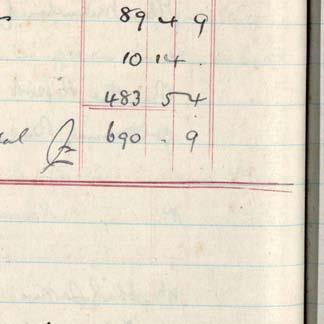 89 4 9
10 14 .
483 5 4
690 . 9